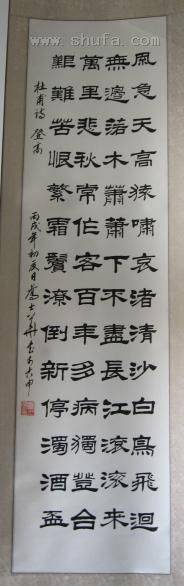 www.shufa.com
風急天高猿嘯哀渚清沙白鳥飛迴
無邊落木蕭蕭下不盡長江滾滾來
萬里悲秋常作客百年多病獨登台
艱難苦恨繁霜鬢潦倒新停濁酒盃
杜甫詩 登高
丙戌年初夏月